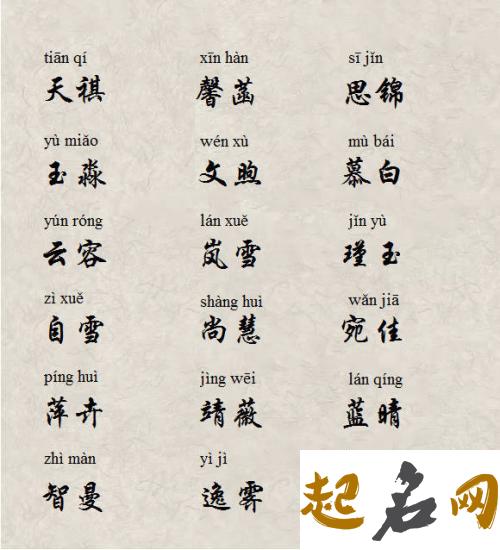 tiān qí xīn hàn sī jǐn
天祺 馨菡 思锦
yù miǎo wén xù mù bái
玉淼 文煦 慕白
yún róng lán xuě jǐn yù
云容 岚雪 瑾玉
zì xuě shàng huì wǎn jiā
自雪 尚慧 宛佳
píng huì jìng wēi lán qíng
萍卉 靖薇 蓝晴
zhì màn yì jì
智曼 逸霁
起名网